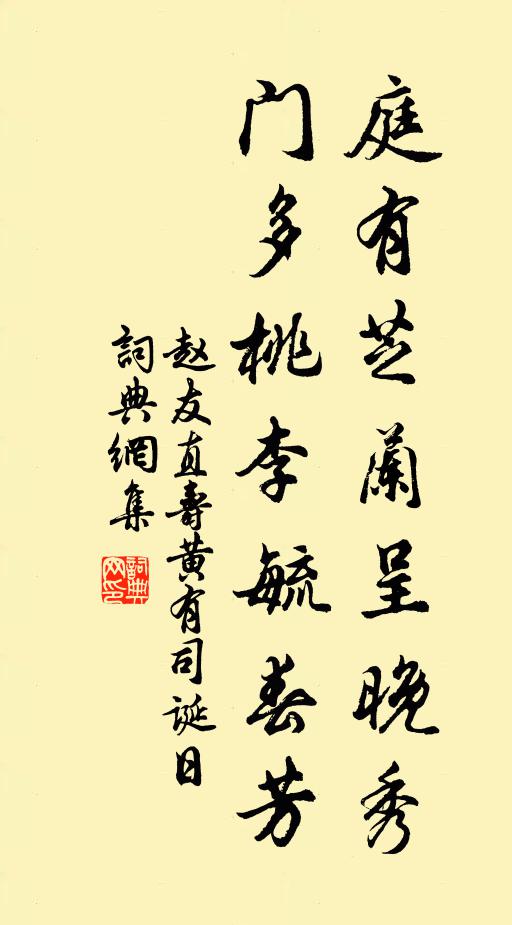 庭有芝蘭呈晚秀
門多桃李毓春芳
赵友直壽黄有司誕日
詞典網集
詞典网印